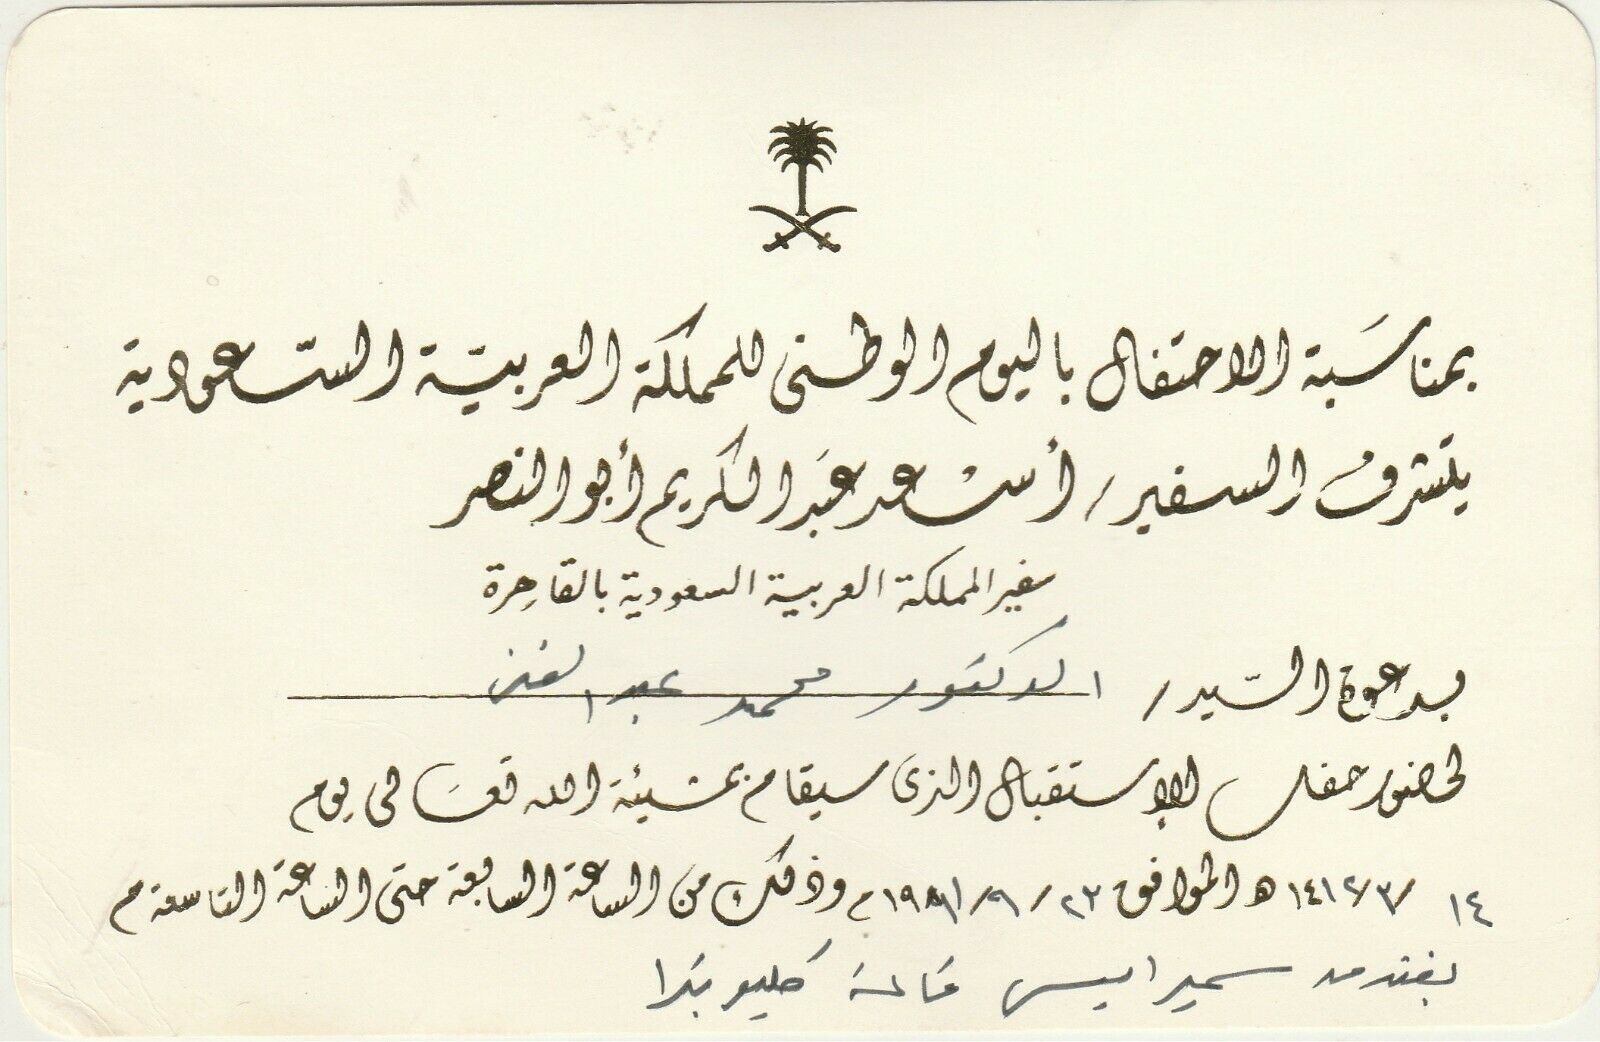 بمناسبة الاحتفال باليوم الوطنى للمملكة العربية السعودية
يتشرف السفير / أسعد عبد الكريم أبو النصر
سفير المملكة العربية السعودية بالقاهرة
بدعوة السيد / الدكتور محمد عبد الغنى
لحضور حفل الإستقبال الذى سيقام بمشيئة الله تعالى يوم
١٤ /٣/ ١٤١٢ هـ الموافق ٢٣ /٩/ م وذلك من الساعة السابعة حتى الساعة التاسعة م
بفندق سميراميس قاعة كليوبترا